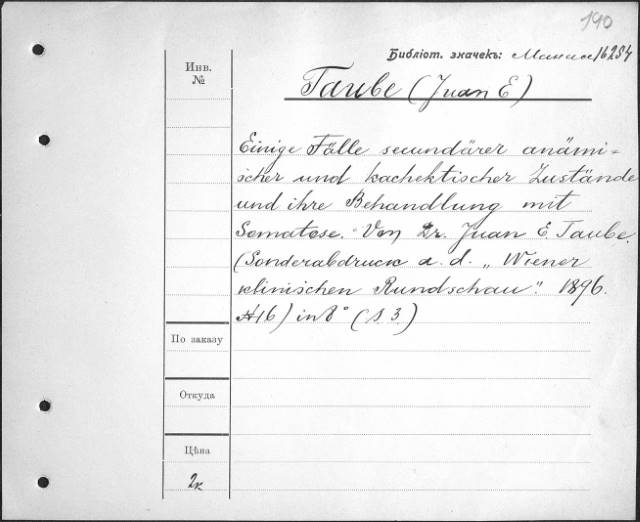 190
Библiот. значекъ: 16254
Инв.
№
Taube (Juan E)
Einige Fälle secundärer anämi-
scher und kachektischer Zustände
und ihre Behandlung mit
Somatose. Von Dr. Juan E. Taube.
(Sonderabdruck a. d. „Wiener
klinischen Rundschau". 1896.
№16) in 8° (S. 3.)
По заказу
Откуда
Цѣна
2к